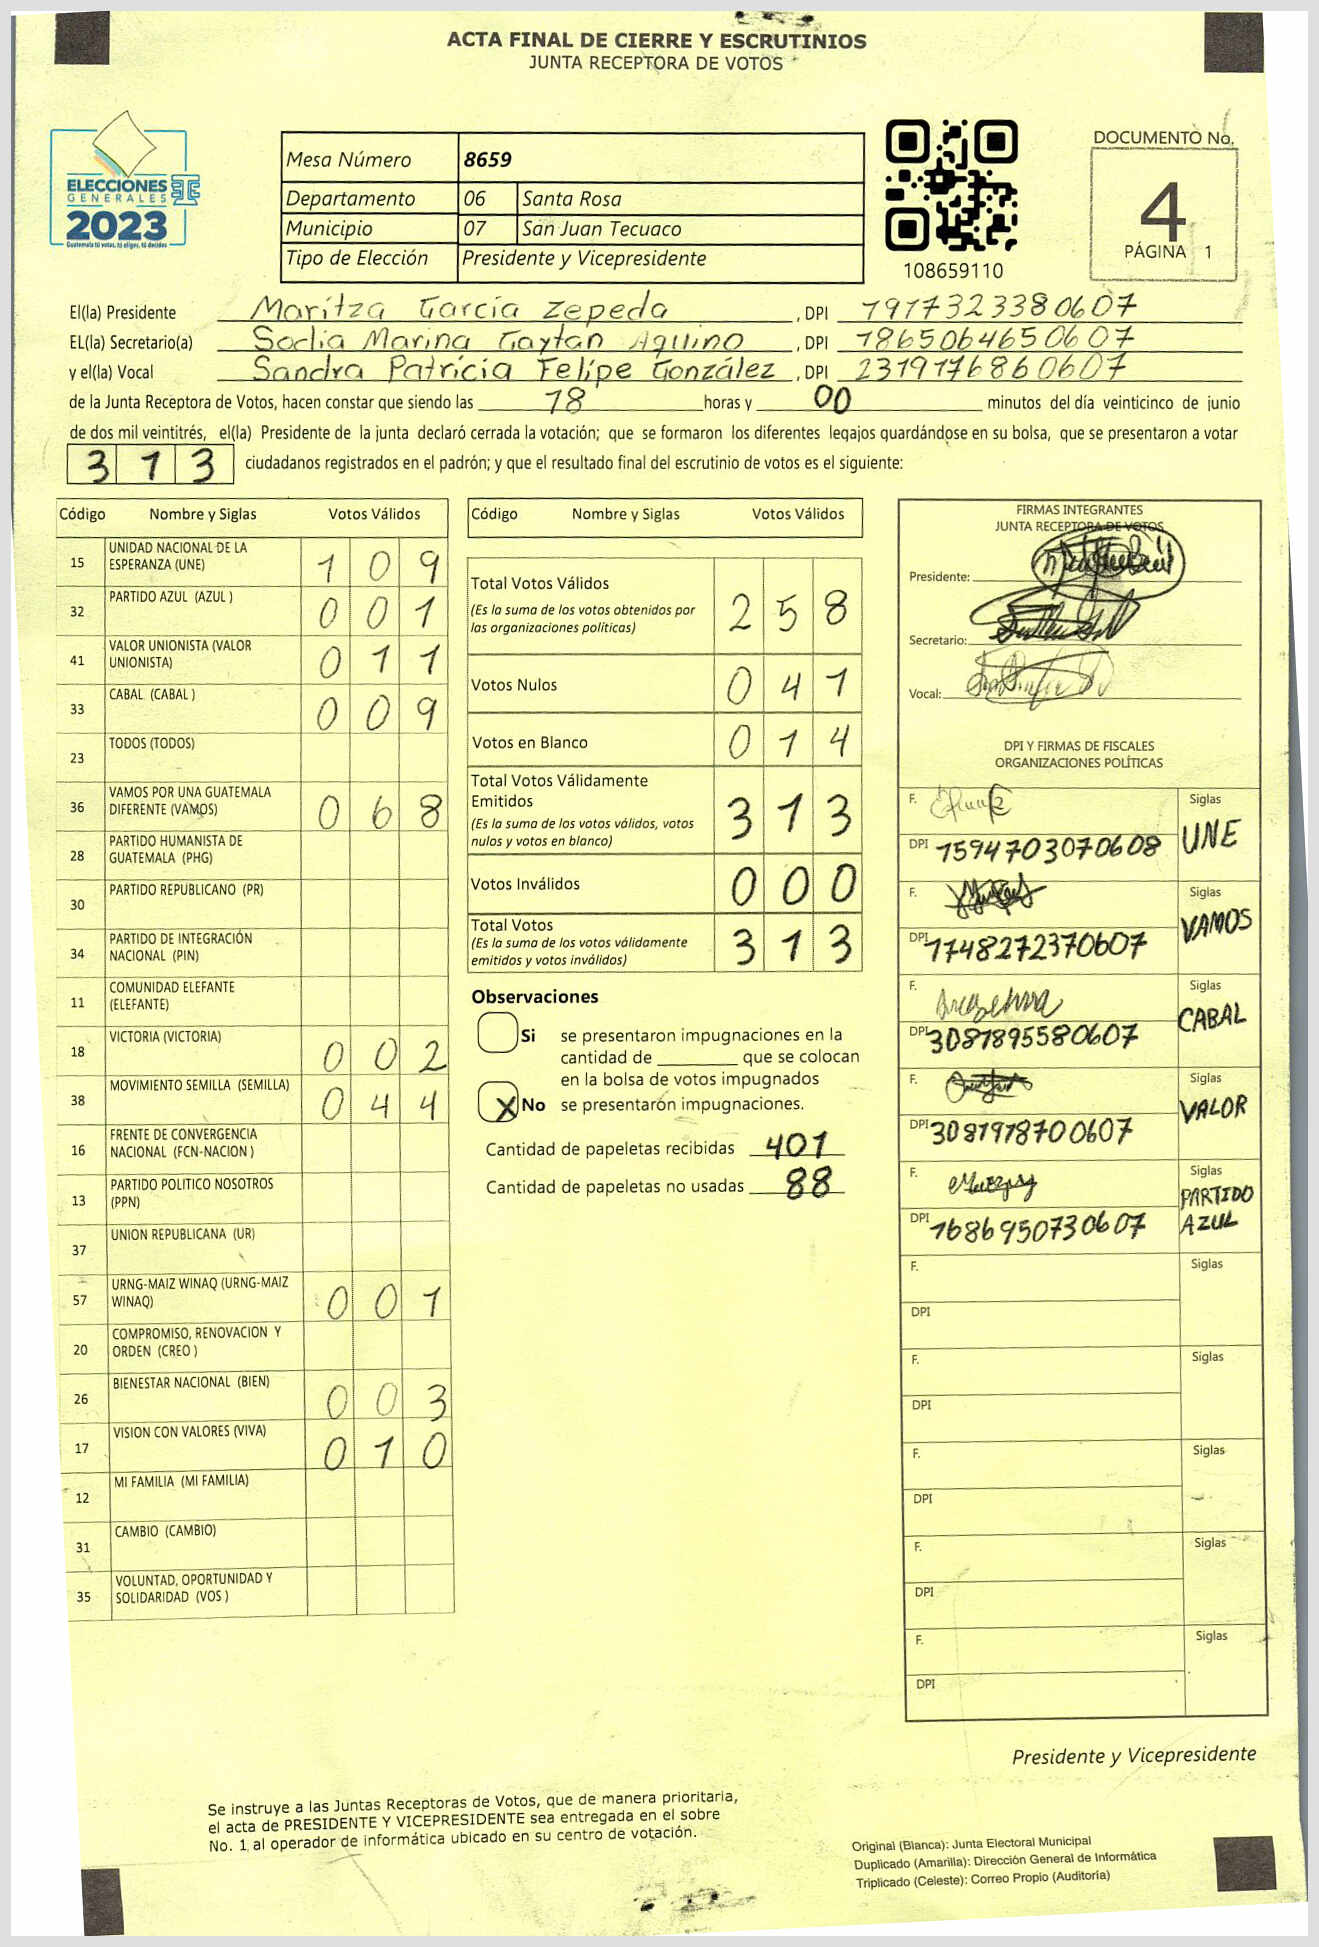 ACTA FINAL DE CIERRE Y ESCRUTINIOS
JUNTA RECEPTORA DE VOTOS
ELECCIONES
GENERALES
2023
Guatemala tú votas, tú eliges, tú decides
Mesa Número 8659
Departamento 06 Santa Rosa
Municipio 07 San Juan Tecuaco
Tipo de Elección Presidente y Vicepresidente
108659110
DOCUMENTO No.
4
PÁGINA 1
El(la) Presidente Maritza García Zepeda, DPI 1917323380607
EL(la) Secretario(a) Soclia Marina Gaytan Aquino, DPI 1865064650607
y el(la) Vocal Sandra Patrícia Felípe González, DPI 2319176860607
de la Junta Receptora de Votos, hacen constar que siendo las 18 horas y 00 minutos del día veinticinco de junio
de dos mil veintitrés, el(la) Presidente de la junta declaró cerrada la votación; que se formaron los diferentes legajos guardándose en su bolsa, que se presentaron a votar
313 ciudadanos registrados en el padrón; y que el resultado final del escrutinio de votos es el siguiente:
Código Nombre y Siglas Votos Válidos
15 UNIDAD NACIONAL DE LA ESPERANZA (UNE) 109
32 PARTIDO AZUL (AZUL ) 001
41 VALOR UNIONISTA (VALOR UNIONISTA) 011
33 CABAL (CABAL ) 009
23 TODOS (TODOS)
36 VAMOS POR UNA GUATEMALA DIFERENTE (VAMOS) 068
28 PARTIDO HUMANISTA DE GUATEMALA (PHG)
30 PARTIDO REPUBLICANO (PR)
34 PARTIDO DE INTEGRACIÓN NACIONAL (PIN)
11 COMUNIDAD ELEFANTE (ELEFANTE)
18 VICTORIA (VICTORIA) 002
38 MOVIMIENTO SEMILLA (SEMILLA) 044
16 FRENTE DE CONVERGENCIA NACIONAL (FCN-NACION )
13 PARTIDO POLITICO NOSOTROS (PPN)
37 UNION REPUBLICANA (UR)
57 URNG-MAIZ WINAQ (URNG-MAIZ WINAQ) 001
20 COMPROMISO, RENOVACION Y ORDEN (CREO )
26 BIENESTAR NACIONAL (BIEN) 003
17 VISION CON VALORES (VIVA) 010
12 MI FAMILIA (MI FAMILIA)
31 CAMBIO (CAMBIO)
35 VOLUNTAD, OPORTUNIDAD Y SOLIDARIDAD (VOS )
Código Nombre y Siglas Votos Válidos
Total Votos Válidos 258
(Es la suma de los votos obtenidos por
las organizaciones políticas)
Votos Nulos 041
Votos en Blanco 014
Total Votos Válidamente
Emitidos 313
(Es la suma de los votos válidos, votos
nulos y votos en blanco)
Votos Inválidos 000
Total Votos 313
(Es la suma de los votos válidamente
emitidos y votos inválidos)
Observaciones
Si se presentaron impugnaciones en la
cantidad de ________ que se colocan
en la bolsa de votos impugnados
X No se presentarón impugnaciones.
Cantidad de papeletas recibidas 401
Cantidad de papeletas no usadas 88
FIRMAS INTEGRANTES
JUNTA RECEPTORA DE VOTOS
Presidente:
Secretario:
Vocal:
DPI Y FIRMAS DE FISCALES
ORGANIZACIONES POLÍTICAS
F. Siglas
DPI 1594703070608 UNE
F. Siglas
DPI 1748272370607 VAMOS
F. Siglas
DPI 3081895580607 CABAL
F. Siglas
DPI 3081918700607 VALOR
F. Siglas
DPI 1686950730607 PARTIDO AZUL
F. Siglas
DPI
F. Siglas
DPI
F. Siglas
DPI
F. Siglas
DPI
F. Siglas
DPI
Presidente y Vicepresidente
Se instruye a las Juntas Receptoras de Votos, que de manera prioritaria,
el acta de PRESIDENTE Y VICEPRESIDENTE sea entregada en el sobre
No. 1 al operador de informática ubicado en su centro de votación.
Original (Blanca): Junta Electoral Municipal
Duplicado (Amarilla): Dirección General de Informática
Triplicado (Celeste): Correo Propio (Auditoría)